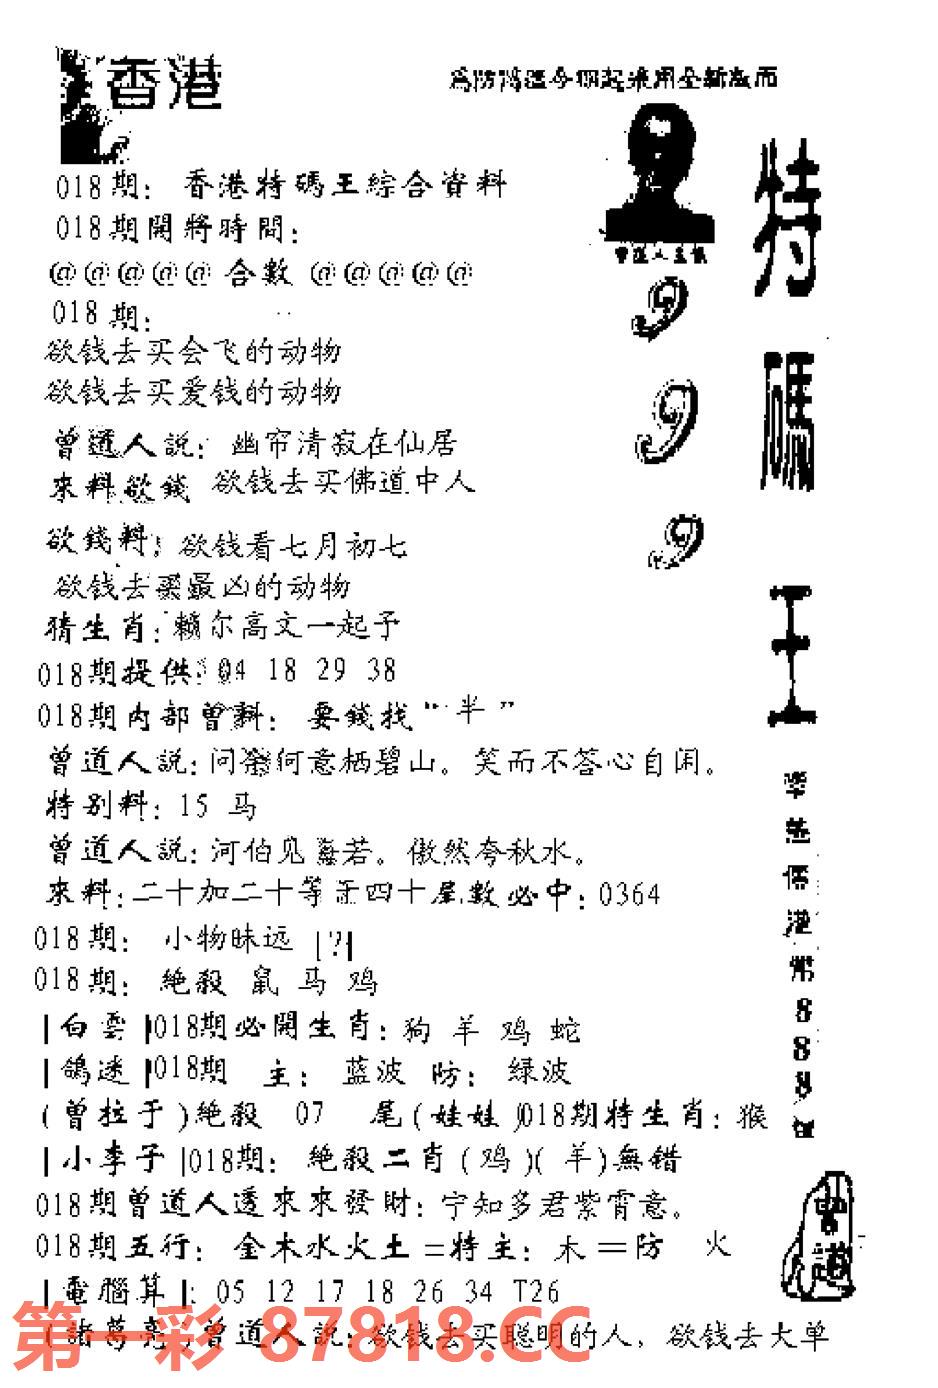 香港
特碼王
018期：香港特碼王綜合資料
018期開將時間：
曾道人主儀
@@@@@ 合數 @@@@@
9
9
9
018期：
欲钱去买会飞的动物
欲钱去买爱钱的动物
曾道人説：幽帘清寂在仙居
來料欲錢 欲钱去买佛道中人
欲錢料：欲钱看七月初七
欲钱去買最凶的动物
猜生肖：赖尔高文一起予
018期提供：04 18 29 38
018期内部曾料：要錢找“半”
曾道人説：问爷何意栖碧山。笑而不答心自闲。
特别料：15 马
曾道人説：河伯见海若。傲然夸秋水。
來料：二十加二十等于四十尾數必中：0364
018期：小物昧远 [?]
018期：絶殺 鼠 马 鸡
|白雲|018期必開生肖：狗 羊 鸡 蛇
|鴿迷|018期 主：蓝波 防：绿波
(曾拉于)絶殺 07 尾(娃娃)018期特生肖：猴
|小李子|018期：絶殺二肖(鸡)(羊)無错
018期曾道人透來來發財：宁知多君紫霄意。
018期五行：金木水火土=特主：木=防 火
|電腦算|：05 12 17 18 26 34 T26
(諸葛亮)曾道人説：欲钱去买聪明的人，欲钱去大单
888
曾道
第一彩 87818.CC